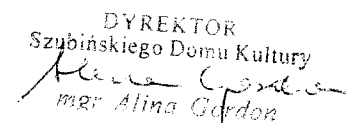 DYREKTOR
Szubińskiego Domu Kultury
Alina Gordon
mgr Alina Gordon